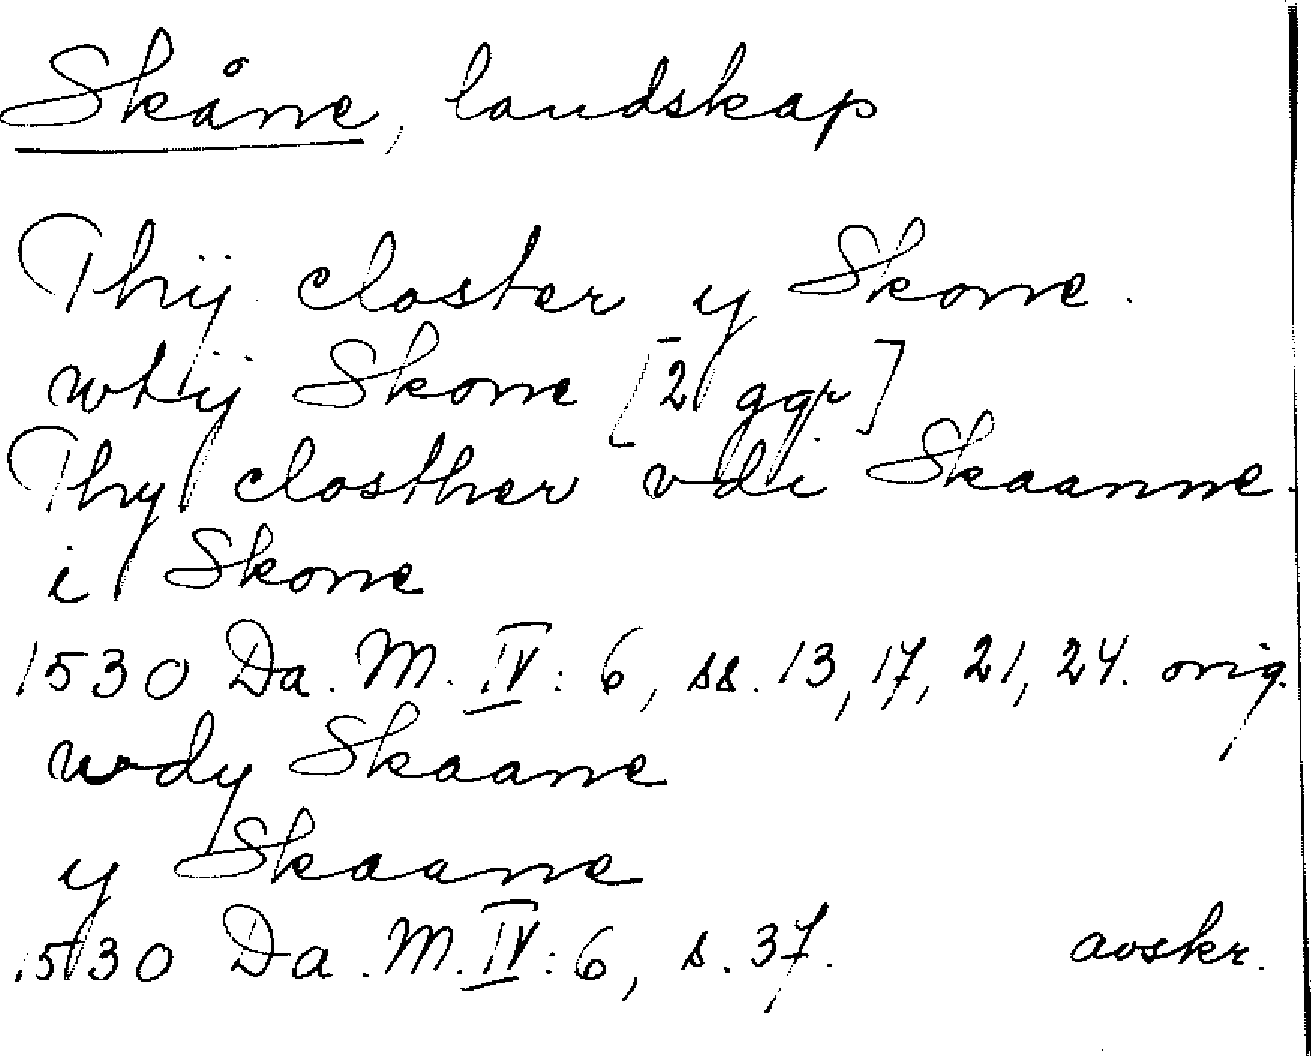 Skåne, landskap
Thÿ closter y Skone.
wtÿ Skone [2 ggr]
Thy closther vdi Skaanne.
i Skone
1530 Da. M. IV: 6, ss. 13, 17, 21, 24. orig.
wdy Skaane
y Skaane
1530 Da. M. IV: 6, s. 37. avskr.